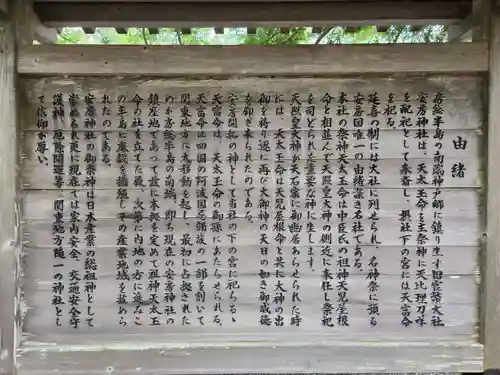 由緒
房総半島の南端神戸郷に鎮り坐す旧官幣大社
安房神社は、天太玉命を主祭神に天比理刀咩命
を配祀として奉斎し、摂社下の宮には天富命
を祀る。
延喜の制には大社に列せられ、名神祭に預る
安房国唯一の由緒深き名社である。
本社の祭神天太玉命は中臣氏の祖神天児屋根
命と相並んで天照皇大神の側近に奉仕し祭祀
を司どられた重要な神に坐します。
天照皇大神が天石窟に御幽居あらせられた時
には、天太玉命は天児屋根命と共に大神の出
御を祈り遂に再び大御神の天日の如き御威徳
を仰ぎ来られたのである。
安房開拓の神として当社の下の宮に祀らるゝ
天富命は、天太玉命の御孫にあたらせられる。
天富命は四国の阿波国忌部族の一部を割いて
関東地方に大移動を起し、最初に占拠された
のが房総半島の南端、即ち現在の安房神社の
鎮座地であって茲に本拠を定めて祖神天太玉
命の社を立てた後、次第に内地の方に進みこ
の半島に麻穀を播殖しその産業地域を拡めら
れたのである。
安房神社の御祭神は日本産業の総祖神として
崇められ更に現在では家内安全、交通安全守
護神、厄除開運等、関東地方随一の神社とし
て信仰が厚い。